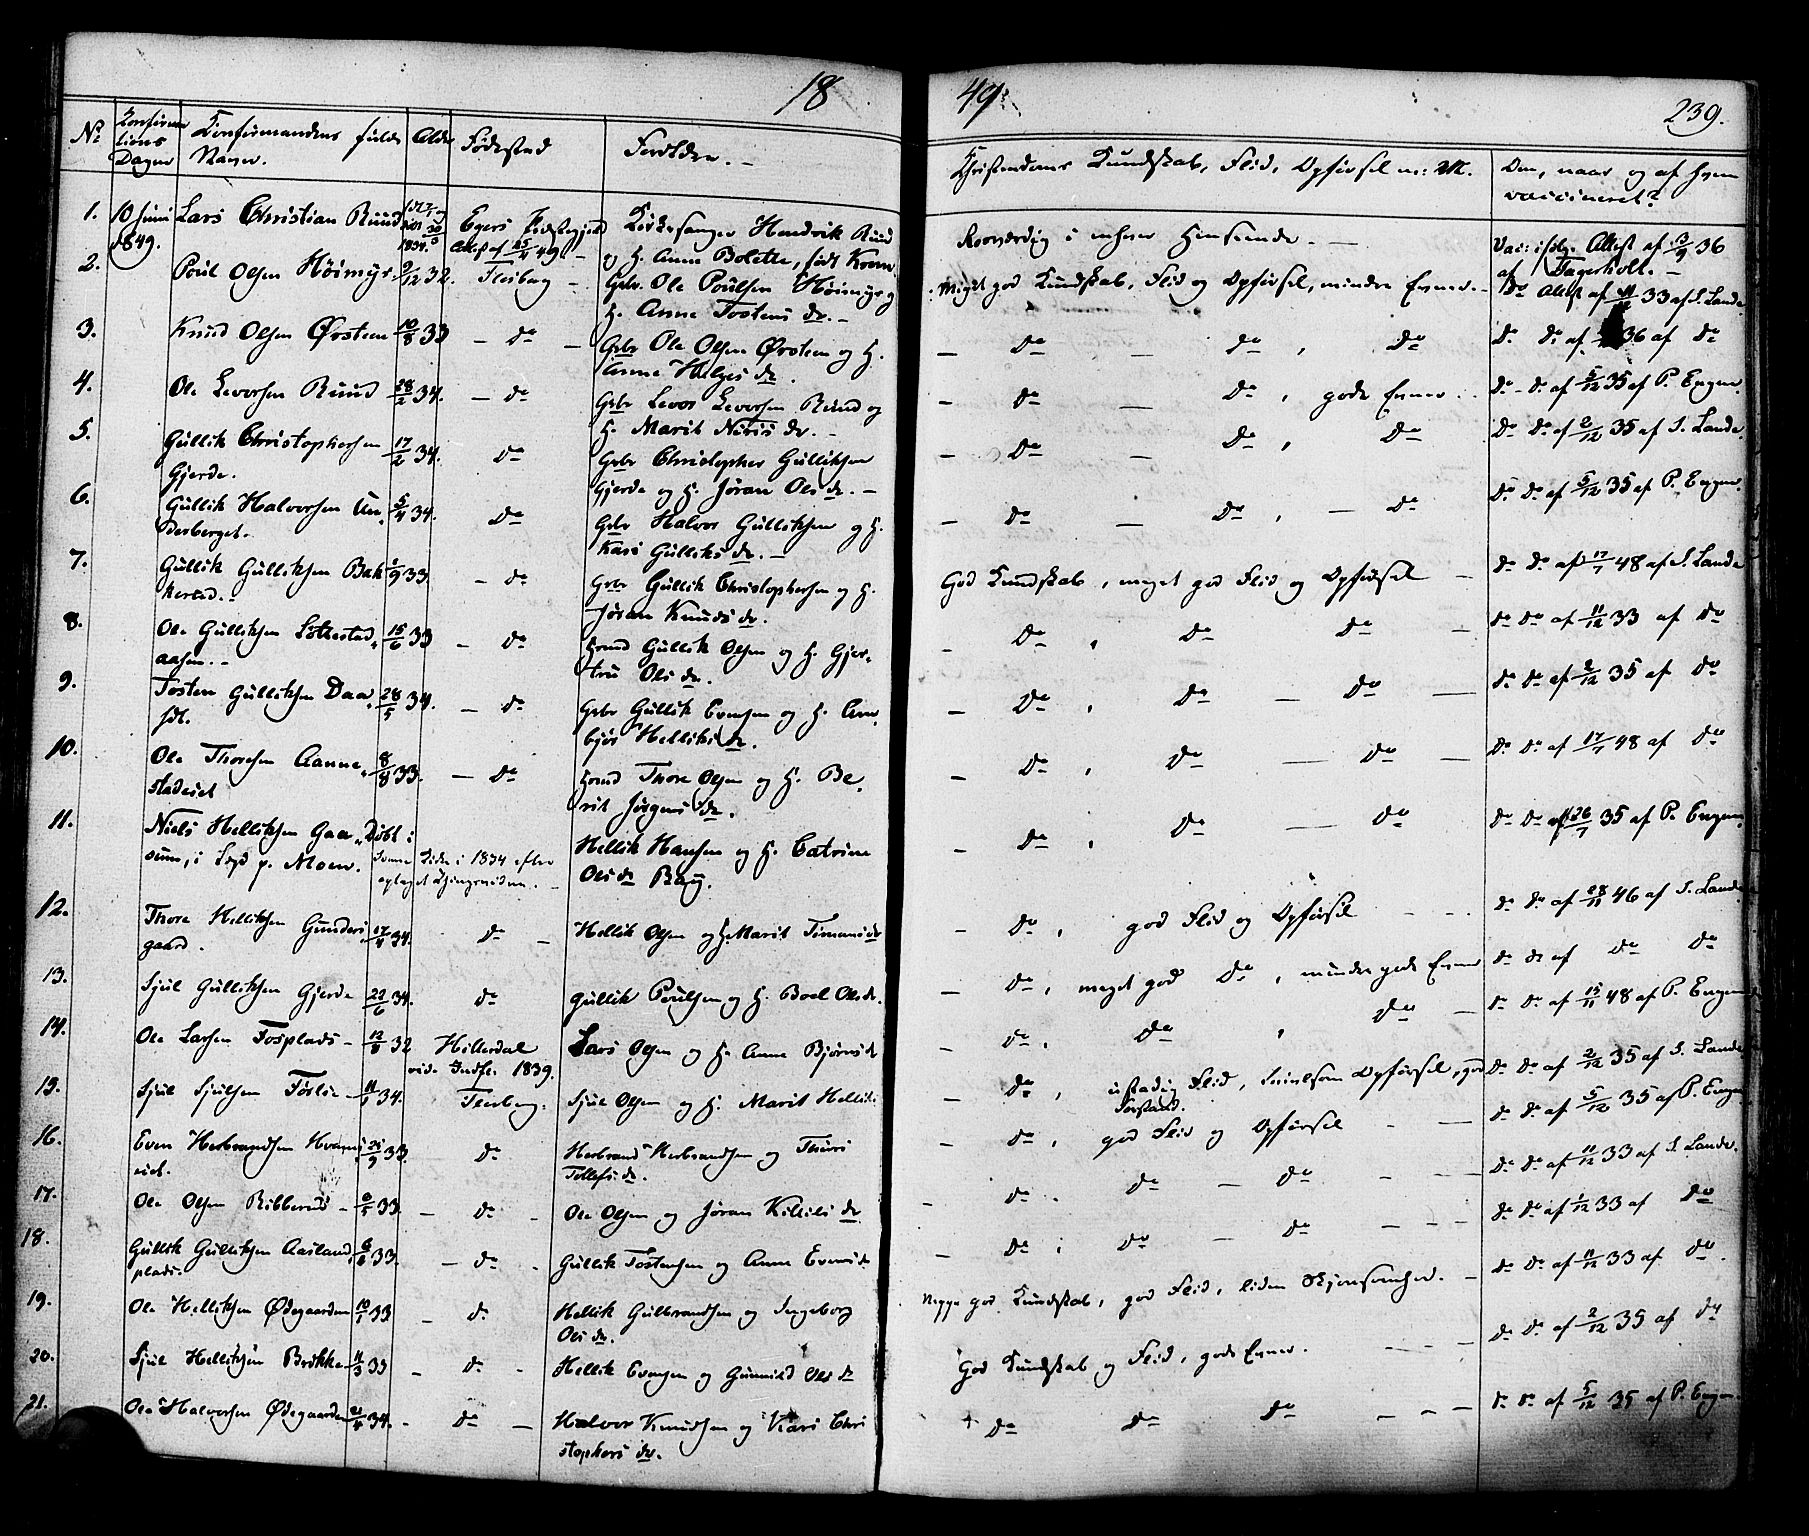 18 49
239.
No
Dagen
Confirmandens fulde
Navn.
Alder
Fødested
Forældre.
Christendoms Kundskab, Flid, Opførsel m: M.
Om, naar og af hvem
vaccineret?
1. 10 Juni Lars Christian Ruud
1849.
Egers Præstegjeld
Attest af 25/4 49
Kirkesanger Hendrik Ruud
og H. Anne Bolette, født
Roesværdig i enhver Henseende.
Vac: ifølg. Attest af 13/9 36
af Fagerholt.
2. Poul Olsen Höimyr 9/12 32. Flesberg
Gbr. Ole Poulsen Höimyr og
H. Anne Tostens dr.
Meget god Kundskab, Flid og Opførsel, mindre Evner.
Do Attest af 33 af S. Lande
3. Knud Olsen Ørsteen 10/8 33 do
Gbr Ole Olsen Ørsteen og H.
Anne Helges dr.
do do, do
do do af 36 af do
4. Ole Levorsen Ruud 28/2 34. do
Gbr Levor Levorsen Ruud og
H. Marit Niris dr.
do do, gode Evner.
do do af 5/12 35 af P. Engen.
5. Gullik Christophersen 17/2 34. do
Gjerde.
Gbr Christopher Gulliksen
Gjerde og H. Jøran Ols dr.
do do, do
do do af 2/12 35 af S. Lande.
6. Gullik Halvorsen Un 5/4 34. do
derberget.
Gbr Halvor Gulliksen og H.
Kari Gulliks dr.
do do, do
do do af 5/12 35 af P. Engen.
7. Gullik Gulliksen Bak 1/9 33. do
kerud.
Gbr Gullik Christophersen og H.
Jøran Knuds dr.
God Kundskab, meget god Flid og Opførsel
do do af 17/7 48 af S. Lande
8. Ole Gulliksen 15/6 33 do
aasen.
Huusmd Gullik Olsen og H. Gjer-
tru Ols dr.
do, do do
do do af 11/12 33 af do
9. Tosten Gulliksen Daa 28/5 34. do
set.
Gbr Gullik Evensen og H. Am
bjør Helliks dr.
do, do do
do do af 2/12 35 af do
10. Ole Thoresen Aanne 8/8 33. do
stadeiet
Huusmd Thore Olsen og H. Be
rit Jørgens dr.
do, do do
do do af 17/7 48 af do
11. Niels Helliksen Gaa Døbt i
sum, i Logi p. Moen.
1834 efter
oplaget
Hellik Hansen og H. Catrine
Ols dr Bag.
do, do do
do do af 26/7 35 af P. Engen.
12. Thore Helliksen Gunders 17/4 34. do
gaard.
Hellik Olsen og H. Marit Timans dr
do, god Flid og Opførsel
do do af 28/11 46 af S. Lande
13. Sjul Gulliksen Gjerde 22/6 34. do
Gullik Poulsen og H. Boel Ols dr.
do, meget god do, mindre gode Evner
do do af do do
14. Ole Larsen Fosplads 12/8 32 Hitterdal
vide Indfl. 1839.
Lars Olsen og H. Anne Bjørns dr
do, do, do
do do af 15/11 48 af P. Engen
15. Sjul Sjulsen Førlie 11/1 34. Flesberg.
Sjul Olsen og H. Marit Helliks
do, ustadig Flid, Opførsel, god
Forstand.
do do af 2/12 35 af S. Lande
16. Even Herbrandsen Hvams 25/9 33. do
eiet.
Herbrand Herbrandsen og Thuri
Tollefs dr.
do, god Flid og Opførsel
do do af 5/12 35 af P. Engen
17. Ole Olsen Ribberud 6/1 33. do
Ole Olsen og Jøran Killils dr
do. do do
do do af 11/12 33 af S. Lande.
18. Gullik Gulliksen Aasland 6/8 33. do
plads.
Gullik Tostensen og Anne Evens dr
do, do do
do do af 1/12 33 af do
19. Ole Helliksen Ødegaarden 10/1 33. do
Hellik Gulbrandsen og Ingeborg
Ols dr.
Neppe god Kundskab, god Flid, liden Skjønsomhed.
do do af 11/12 33 af do
20. Sjul Helliksen Brække 11/3 33 do
Hellik Evensen og Gunnild Ols dr
God Kundskab og Flid, gode Evner.
do do af 2/12 35 af do
21. Ole Halvorsen Ødegaarden 21/4 34. do
Halvor Knudsen og Kari Chri
stophers dr.
do do do
do do af 5/12 35 af P. Engen.